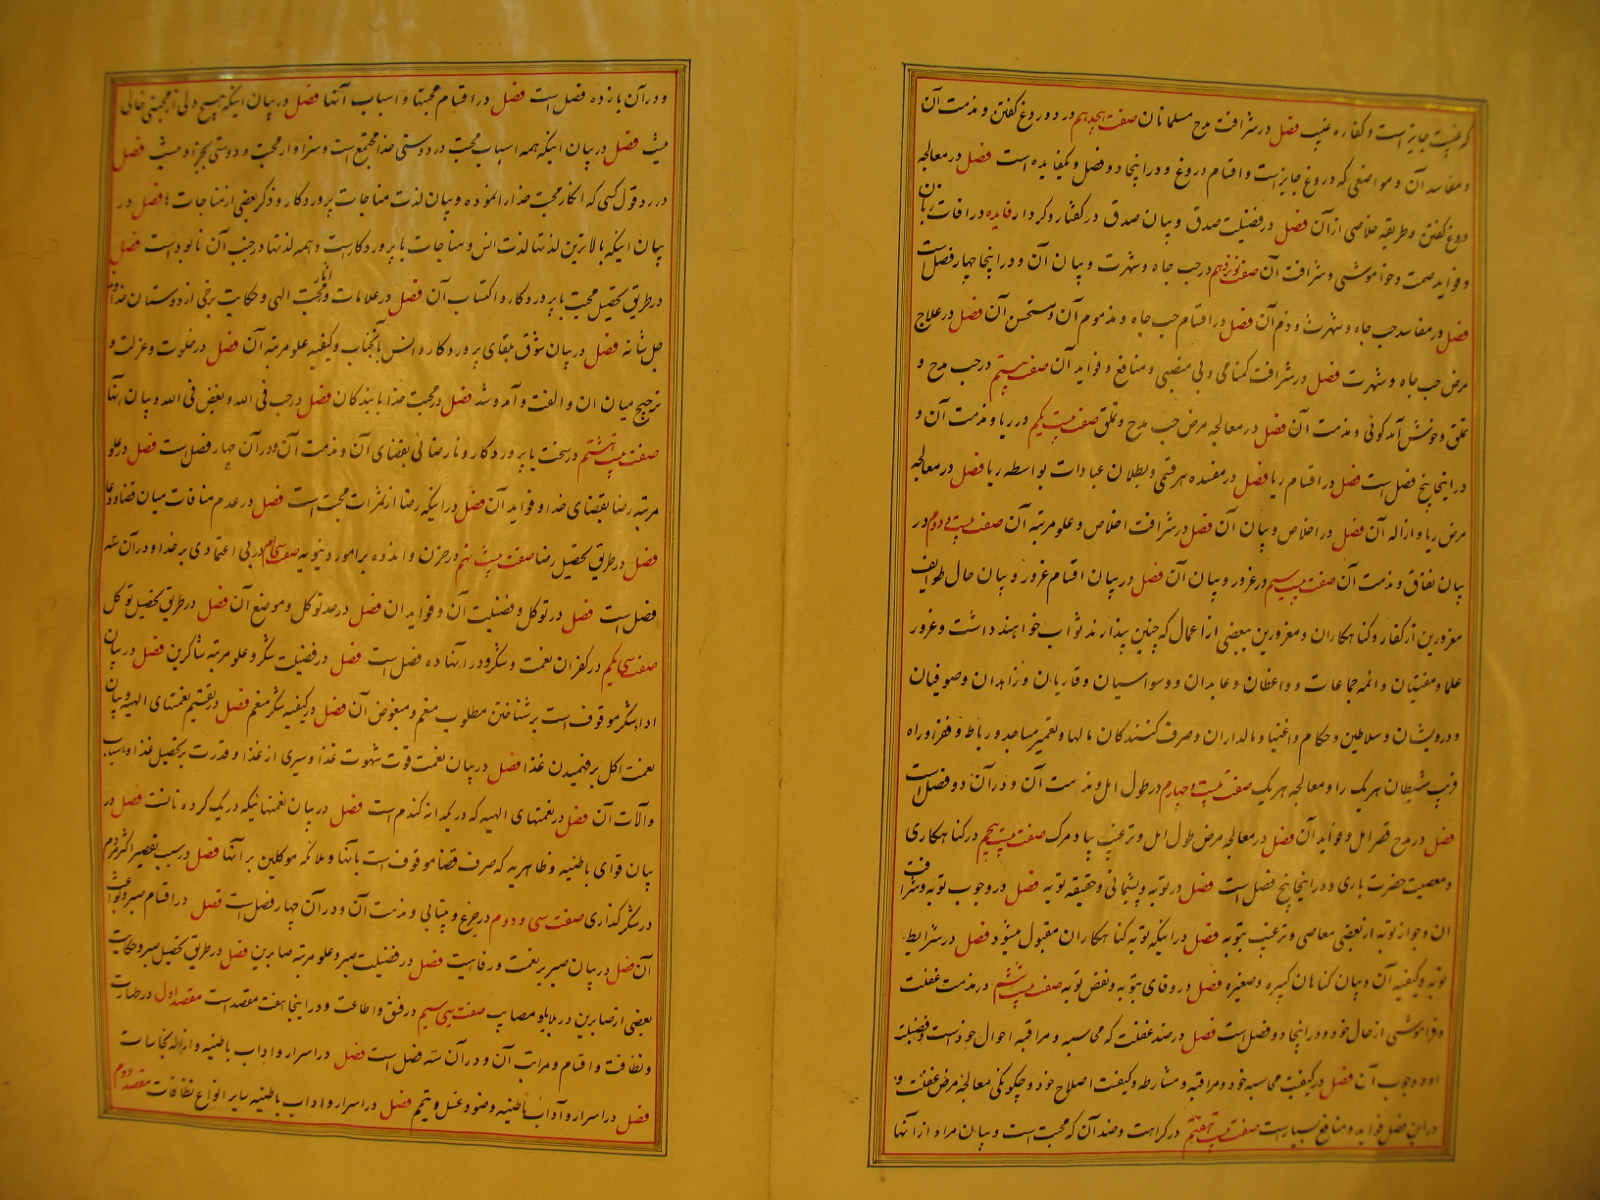 که غیبت جایز است و کفاره غیبت فصل در شرافت مدح مسلمانان صفت هجدهم در دروغ گفتن و مذمت آن
و مفاسد آن و مواضعی که دروغ جایز است و اقسام دروغ و در اینجا دو فصل و یکفایده است فصل در معالجه
دروغ گفتن و طریقه خلاصی از آن فصل در فضیلت صدق و بیان صدق در گفتار و کردار فایده در آفات زبان
و فواید صمت و خواموشی و شرافت آن صفت نوزدهم در حب جاه و شهرت و بیان آن و در اینجا چهار فصل است
فصل در مفاسد حب جاه و شهرت و ذم آن فصل در اقسام حب جاه و مذموم آن و مستحسن آن فصل در علاج
مرض حب جاه و شهرت فصل در شرافت گمنامی و بی منصبی و منافع و فواید آن صفت بیستم در حب مدح و
تملق و خوش آمد گوئی و مذمت آن فصل در معالجه مرض حب مدح و تملق صفت بیست یکم در ریا و مذمت آن و
در اینجا پنج فصل است فصل در اقسام ریا فصل در مفسده هر قسمی و بطلان عبادات بواسطه ریا فصل در معالجه
مرض ریا و ازاله آن فصل در اخلاص و بیان آن فصل در شرافت اخلاص و علو مرتبه آن صفت بیست و دوم در
بیان نفاق و مذمت آن صفت بیست سیم در غرور و بیان آن فصل در بیان اقسام غرور و بیان حال طوایف
مغرورین از کفار و گناهکاران و مغرورین ببعضی از اعمال که چنین پندارند ثواب خواهند داشت و غرور
علما و مفتیان و ائمه جماعات و واعظان و عابدان و وسواسیان و قاریان و زاهدان و صوفیان
و درویشان و سلاطین و حکام و اغنیا و مالداران و صرف کنندگان مالها و تعمیر مساجد و رباط و فقرا و راه
فریب شیطان هریک را و معالجه هریک صفت بیست و چهارم در طول امل و مذمت آن و در آن دو فصل است
فصل در مدح قصر امل و فواید آن فصل در معالجه مرض طول امل و ترغیب بیاد مرگ صفت بیست پنجم در گناهکاری
و معصیت حضرت باری و در اینجا پنج فصل است فصل در توبه و پشیمانی و حقیقه توبه فصل در وجوب توبه و شرافت
ان و جواز توبه از بعضی معاصی و ترغیب بتوبه فصل در اینکه توبه گناهکاران مقبول میشود فصل در شرایط
توبه و کیفیه آن و بیان گناهان کبیره و صغیره فصل در وفای بتوبه و نقض توبه صفت بیست ششم در مذمت غفلت
و فراموشی از حال خود و در اینجا دو فصل است فصل در ضد غفلت که محاسبه و مراقبه احوال خود است و فضیلت
او و وجوب آن فصل در کیفیت محاسبه خود و مراقبه و مشارطه و کیفیت اصلاح خود و چگونگی معالجه مرض غفلت و
در این فصل فواید و منافع بسیار است صفت بیست هفتم در کراهت و ضد آن که محبت است و بیان مراد از آنها
و در آن یازده فصل است فصل در اقسام محبتها و اسباب آنها فصل در بیان اینکه هیچ دلی از محبتی خالی
نیست فصل در بیان اینکه همه اسباب محبت در دوستی خدا مجتمع است و سزاوار محبت و دوستی بجز او نیست فصل
در رد قول کسی که انکار محبت خدا را نموده و بیان لذت مناجات پروردگار و ذکر بعضی از مناجات ها فصل در
بیان اینکه بالاترین لذتها لذت انس و مناجات با پروردگار است و همه لذتها در جنب آن نابود است فصل
در طریق تحصیل محبت با پروردگار و اکتساب آن فصل در علامات و آثار محبت الهی و حکایت برخی از دوستان خداوند
جل شانه فصل در بیان شوق بلقای پروردگار و انس بآنجناب و کیفیه علو مرتبه آن فصل در خلوت و عزلت و
ترجیح میان ان و الفت و آمد و شد فصل در محبت خدا با بندگان فصل در حب فی الله و بغض فی الله و بیان آنها
صفت بیست هشتم در سخت با پروردگار و نارضائی بقضای آن و مذمت آن و در آن چهار فصل است فصل در علو
مرتبه رضا بقضای خدا و فواید آن فصل در اینکه رضا از ثمرات محبت است فصل در عدم منافات میان قضا و دعا
فصل در طریق تحصیل رضا صفت بیست نهم در حزن و اندوه بر امور دنیویه صفت سی ام در بی اعتمادی بر خدا و در آن سه
فصل است فصل در توکل و فضیلت آن و فواید ان فصل در حد توکل و موضع آن فصل در طریق تحصیل توکل
صفت سی یکم در کفران نعمت و شکر و در اینها ده فصل است فصل در فضیلت شکر و علو مرتبه شاکرین فصل در بیان
اداء شکر موقوف است بر شناختن مطلوب منعم و مبغوض آن فصل در کیفیه شکر منعم فصل در تقسیم نعمتهای الهیه و بیان
نعمت اکل بر فهمیدن غذا فصل در بیان نعمت قوت شهوت غذا و سیری از غذا و قدرت بر تحصیل غذا و اسباب
و آلات آن فصل در نعمتهای الهیه که در یکدانه گندم است فصل در بیان نعمتهائیکه در یک گرده نانست فصل در
بیان قوای باطنیه و ظاهریه که صرف قضا موقوف است بآنها و ملائکه موکلین بر آنها فصل در سبب تقصیر اکثر مردم
در شکر گذاری صفت سی و دوم در جزع و بیتابی و مذمت آن و در آن چهار فصل است فصل در اقسام صبر و ثواب
آن فصل در بیان صبر بر نعمت و رفاهیت فصل در فضیلت صبر و علو مرتبه صابرین فصل در طریق تحصیل صبر و حکایت
بعضی از صابرین در بلایا و مصایب صفت سی سیم در فسق و اطاعت و در اینجا هفت مقصد است مقصد اول در طهارت
و نظافت و اقسام و مراتب آن و در آن سه فصل است فصل در اسرار و اداب باطنیه و ازاله نجاسات
فصل در اسرار و آداب باطنیه وضو و غسل و تیمم فصل در اسرار و اداب باطنیه سایر انواع نظافات مقصد دوم